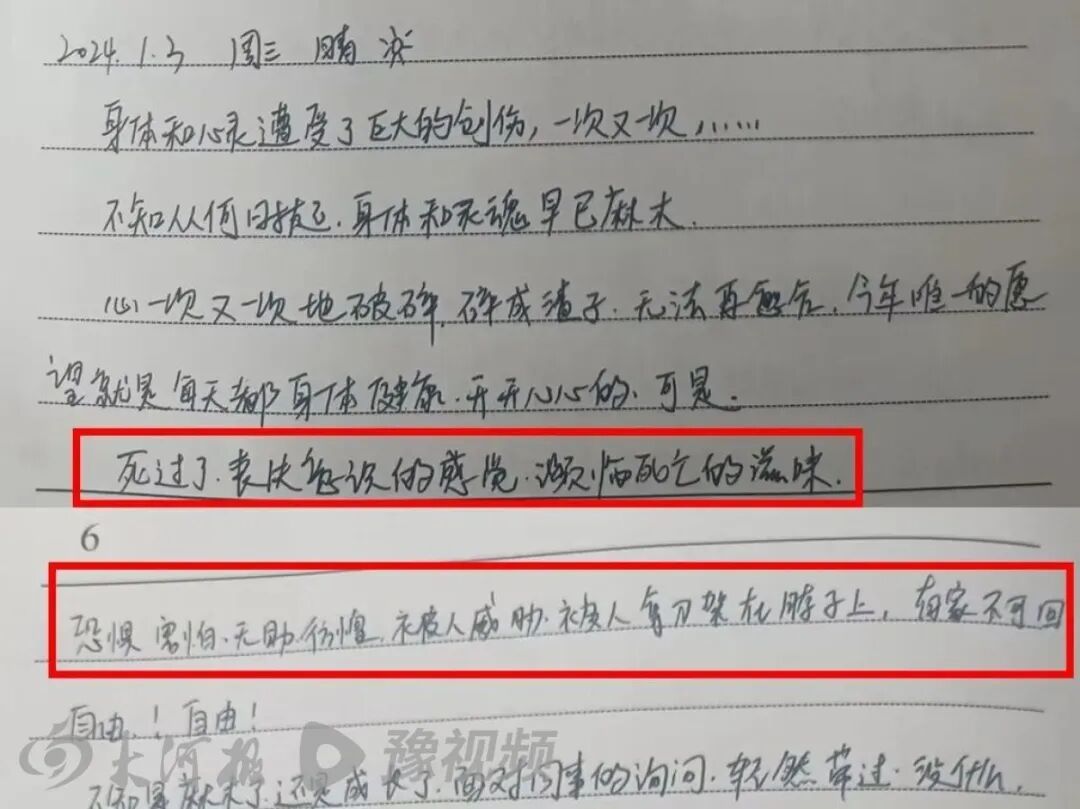 2024.1.3 周三 晴 冷
身体和心灵遭受了巨大的创伤,一次又一次,……
不知从何日起.身体和灵魂早已麻木.
心一次又一次地破碎,碎成渣子.无法再愈合.今年唯一的愿
望就是每天都身体健康.开开心心的、可是.
死过了.丧失意识的感觉.濒临死亡的滋味.
6
恐惧 害怕、无助.彷惶.被人威胁.被人拿刀架在脖子上,有家不可回
自由!自由!
不知是麻木了还是成长了.面对同事的询问.轻然带过.没什么.
大河报 豫视频